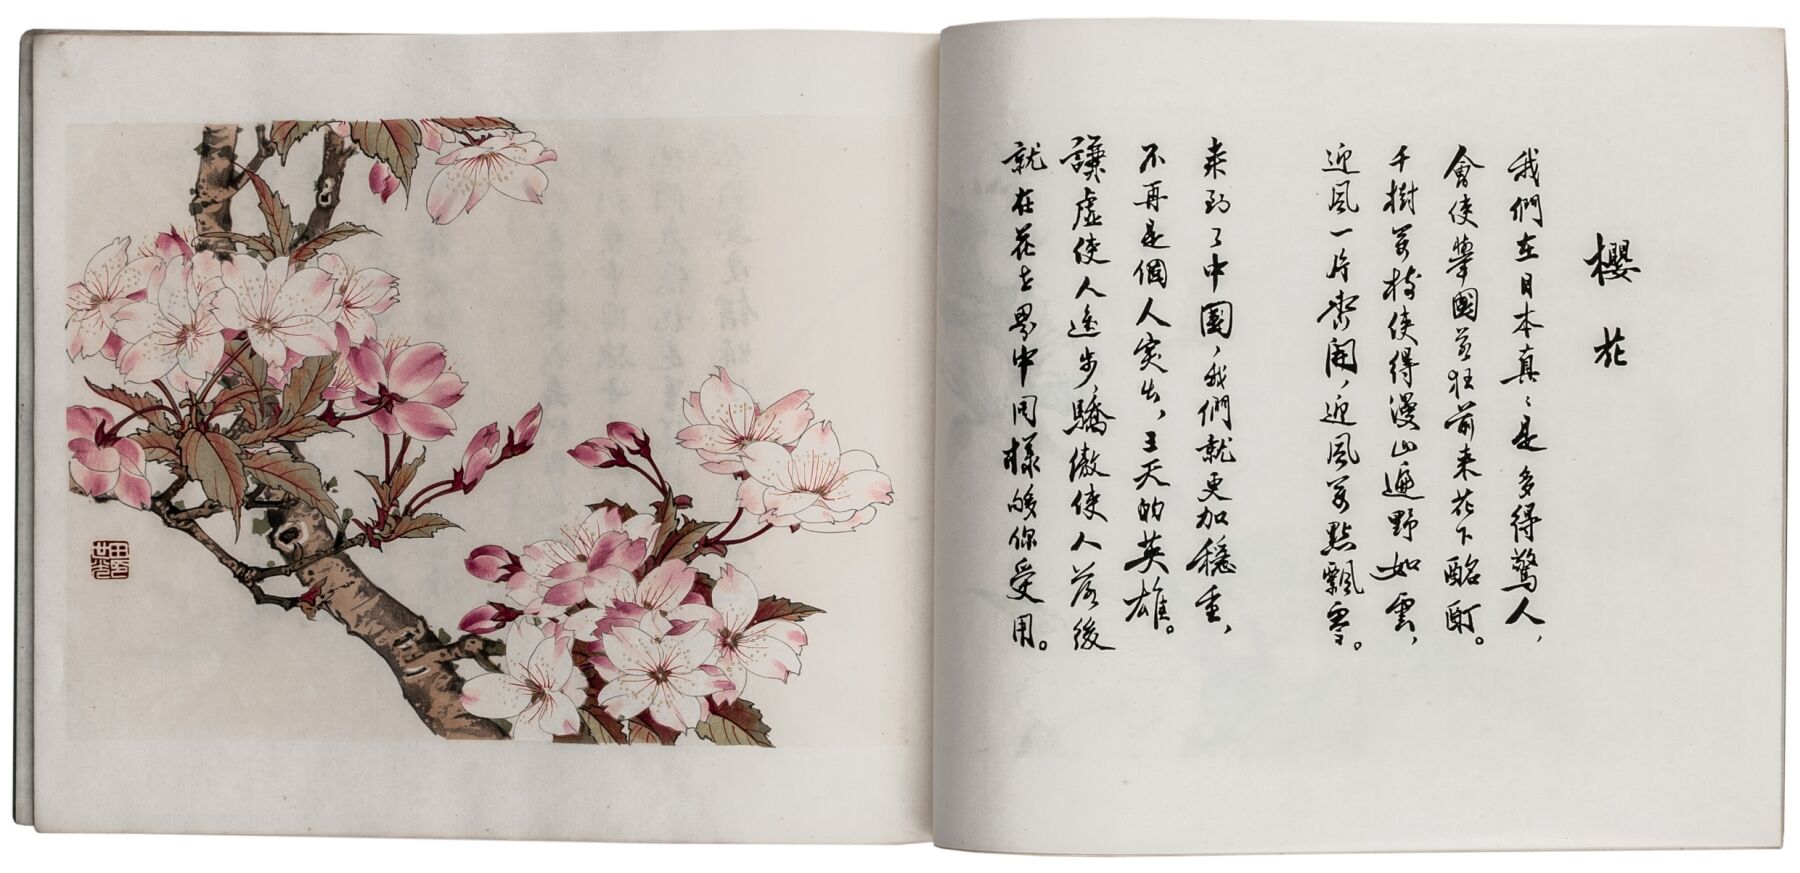 櫻花
我們在日本真〻是多得驚人,
會使舉國若狂前来花下酩酊。
千樹萬枝使得漫山遍野如雲,
迎風一片齊開,迎風萬點飄零。
来到了中國,我們就更加穩重,
不再是個人突出,三天的英雄。
謙虛使人進步,驕傲使人落後
就在花世界中同樣够你受用。
田世光印